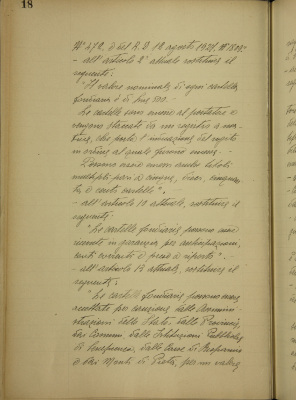 18
N° 272, e del R. D. 18 agosto
- all'articolo 2° attuale sostituire il
seguente:
"Il valore nominale di ogni cartella
fondiaria è di lire 500. -
Le cartelle sono emesse al portatore e
vengono staccate da un registro a ma-
trice, che porta l'indicazione del
in ordine al quale furono emesse. -
Possono essere emessi anche titoli
multipli pari a cinque, dieci, cinquan-
ta, e cento cartelle".
- all'articolo 10 attuale, sostituire il
seguente:
"Le cartelle fondiarie possono essere
ricevute in garanzia per anticipazioni,
conti correnti e prese a riporto". -
- all'articolo 14 attuale, sostituire il
seguente:
"Le cartelle fondiarie possono essere
accettate per cauzione dalle Ammini-
strazioni dello Stato, dalle Provincie,
dai Comuni, dalle Istituzioni Pubbliche
di Beneficenza, dalle Casse di Risparmio
e dai Monti di Pietà, per un valore